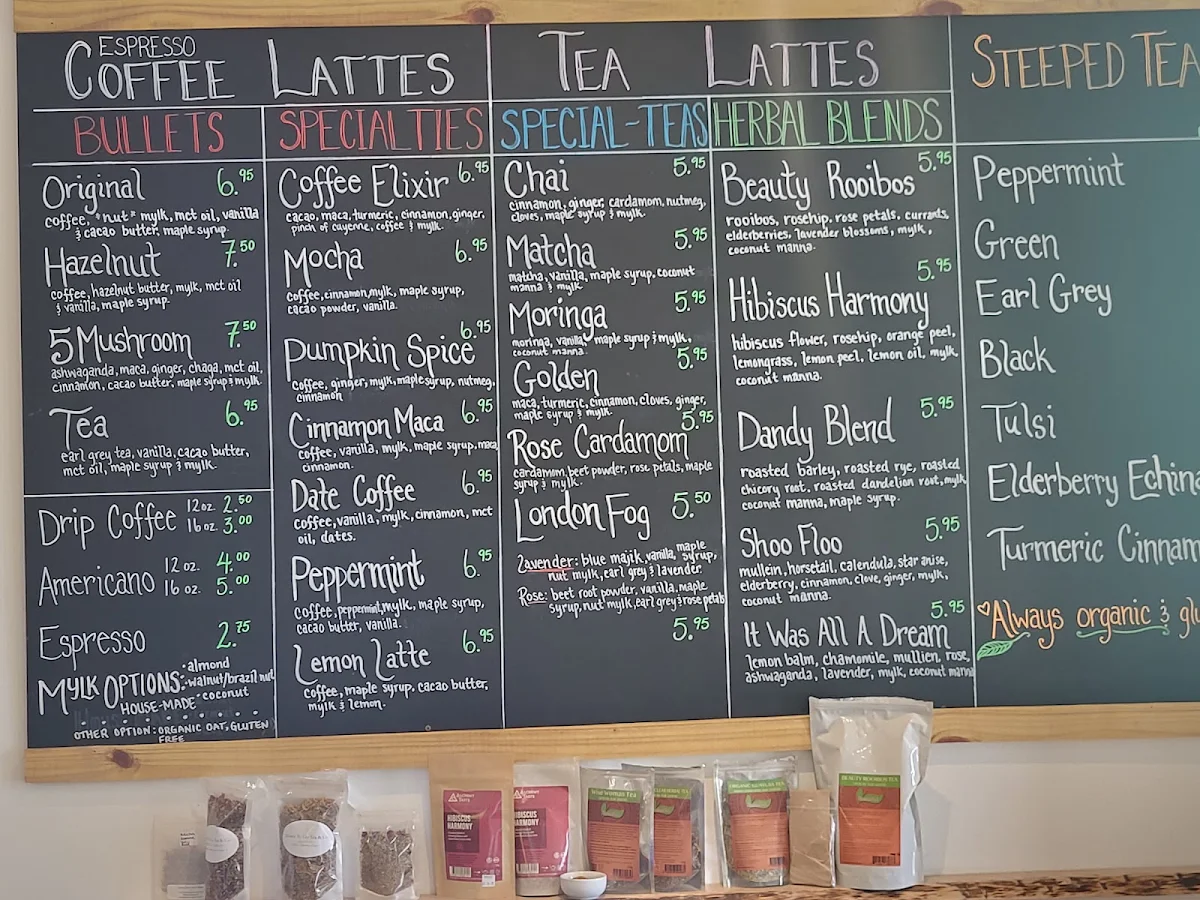 ESPRESSO
COFFEE LATTES
BULLETS
Original 6.95
coffee, "nut" mylk, mct oil, vanilla
& cacao butter, maple syrup.
Hazelnut 7.50
coffee, hazelnut butter, mylk, mct oil
& vanilla, maple syrup.
5 Mushroom 7.50
ashwaganda, maca, ginger, chaga, mct oil,
cinnamon, cacao butter, maple syrup & mylk.
Tea 6.95
earl grey tea, vanilla, cacao butter,
mct oil, maple syrup & mylk.
Drip Coffee 12oz 2.50
16oz. 3.00
Americano 12 oz. 4.00
16 oz. 5.00
Espresso 2.75
MYLK OPTIONS: •almond
HOUSE-MADE •walnut/brazil nut
•coconut
OTHER OPTION: ORGANIC OAT, GLUTEN
FREE
SPECIALTIES
Coffee Elixir 6.95
cacao, maca, turmeric, cinnamon, ginger,
pinch of cayenne, coffee & mylk.
Mocha 6.95
coffee, cinnamon, mylk, maple syrup,
cacao powder, vanilla.
Pumpkin Spice 6.95
coffee, ginger, mylk, maple syrup, nutmeg,
cinnamon
Cinnamon Maca 6.95
coffee, vanilla, mylk, maple syrup, maca,
cinnamon.
Date Coffee 6.95
coffee, vanilla, mylk, cinnamon, mct
oil, dates.
Peppermint 6.95
coffee, peppermint, mylk, maple syrup,
cacao butter, vanilla.
Lemon Latte 6.95
coffee, maple syrup, cacao butter,
mylk & lemon.
TEA LATTES
SPECIAL-TEAS
Chai 5.95
cinnamon, ginger, cardamom, nutmeg,
cloves, maple syrup & mylk.
Matcha 5.95
matcha, vanilla, maple syrup, coconut
manna & mylk.
Moringa 5.95
moringa, vanilla, maple syrup & mylk,
coconut manna.
Golden 5.95
maca, turmeric, cinnamon, cloves, ginger,
maple syrup & mylk.
Rose Cardamom 5.95
cardamom, beet powder, rose petals, maple
syrup & mylk.
London Fog 5.50
Lavender: blue majik, vanilla, maple syrup,
nut mylk, earl grey & lavender.
Rose: beet root powder, vanilla, maple
syrup, nut mylk, earl grey & rose petals
5.95
HERBAL BLENDS
Beauty Rooibos 5.95
rooibos, rosehip, rose petals, currants,
elderberries, lavender blossoms, mylk,
coconut manna.
Hibiscus Harmony 5.95
hibiscus flower, rosehip, orange peel,
lemongrass, lemon peel, lemon oil, mylk,
coconut manna.
Dandy Blend 5.95
roasted barley, roasted rye, roasted
chicory root, roasted dandelion root, mylk
coconut manna, maple syrup.
Shoo Floo 5.95
mullein, horsetail, calendula, star anise,
elderberry, cinnamon, clove, ginger, mylk,
coconut manna.
It Was All A Dream 5.95
lemon balm, chamomile, mullien, rose,
ashwaganda, lavender, mylk, coconut manna
STEEPED TEA
Peppermint
Green
Earl Grey
Black
Tulsi
Elderberry Echina
Turmeric Cinnam
Always organic & glu
HIBISCUS
HARMONY
HIBISCUS
HARMONY
BEAUTY ROOIBOS TEA